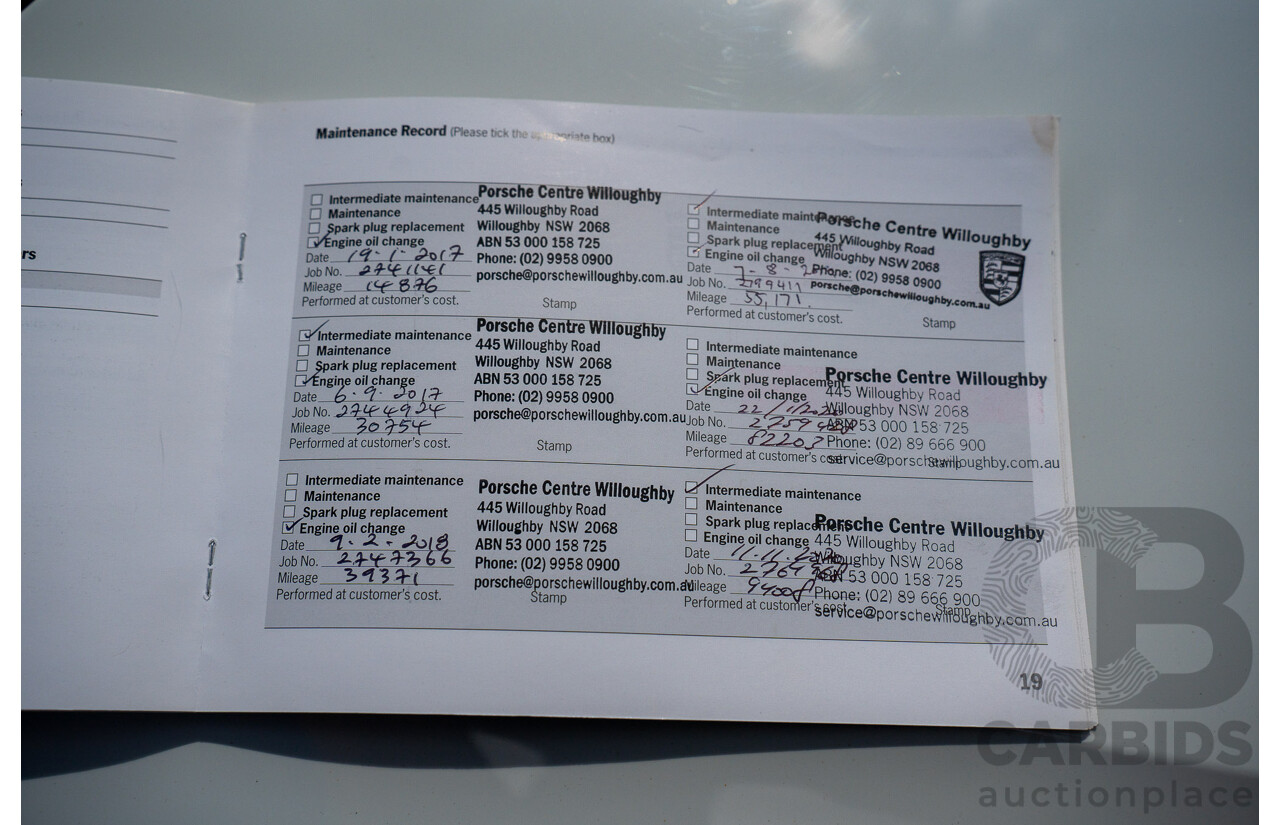 Maintenance Record (Please tick the appropriate box)
Intermediate maintenance
Maintenance
Spark plug replacement
Engine oil change
Date 19.1.2017
Job No. 2741141
Mileage 14876
Performed at customer's cost.
Porsche Centre Willoughby
445 Willoughby Road
Willoughby NSW 2068
ABN 53 000 158 725
Phone: (02) 9958 0900
porsche@porschewilloughby.com.au
Stamp
Intermediate maintenance
Maintenance
Spark plug replacement
Engine oil change
Date 6.9.2017
Job No. 2744924
Mileage 30754
Performed at customer's cost.
Porsche Centre Willoughby
445 Willoughby Road
Willoughby NSW 2068
ABN 53 000 158 725
Phone: (02) 9958 0900
porsche@porschewilloughby.com.au
Stamp
Intermediate maintenance
Maintenance
Spark plug replacement
Engine oil change
Date 9.2.2018
Job No. 2747366
Mileage 39371
Performed at customer's cost.
Porsche Centre Willoughby
445 Willoughby Road
Willoughby NSW 2068
ABN 53 000 158 725
Phone: (02) 9958 0900
porsche@porschewilloughby.com.au
Stamp
Intermediate maintenance
Maintenance
Spark plug replacement
Engine oil change
Date 7-8-
Job No.
Mileage 55,171.
Performed at customer's cost.
Porsche Centre Willoughby
445 Willoughby Road
Willoughby NSW 2068
Phone: (02) 9958 0900
porsche@porschewilloughby.com.au
Stamp
Intermediate maintenance
Maintenance
Spark plug replacement
Engine oil change
Date 22/1/2020
Job No.
Mileage 82203
Performed at customer's cost.
Porsche Centre Willoughby
445 Willoughby Road
Willoughby NSW 2068
ABN 53 000 158 725
Phone: (02) 89 666 900
service@porschewilloughby.com.au
Stamp
Intermediate maintenance
Maintenance
Spark plug replacement
Engine oil change
Date 11.11.2020
Job No.
Mileage 94008
Performed at customer's cost.
Porsche Centre Willoughby
445 Willoughby Road
Willoughby NSW 2068
ABN 53 000 158 725
Phone: (02) 89 666 900
service@porschewilloughby.com.au
Stamp
19
rs
CB
CARBIDS
auctionplace